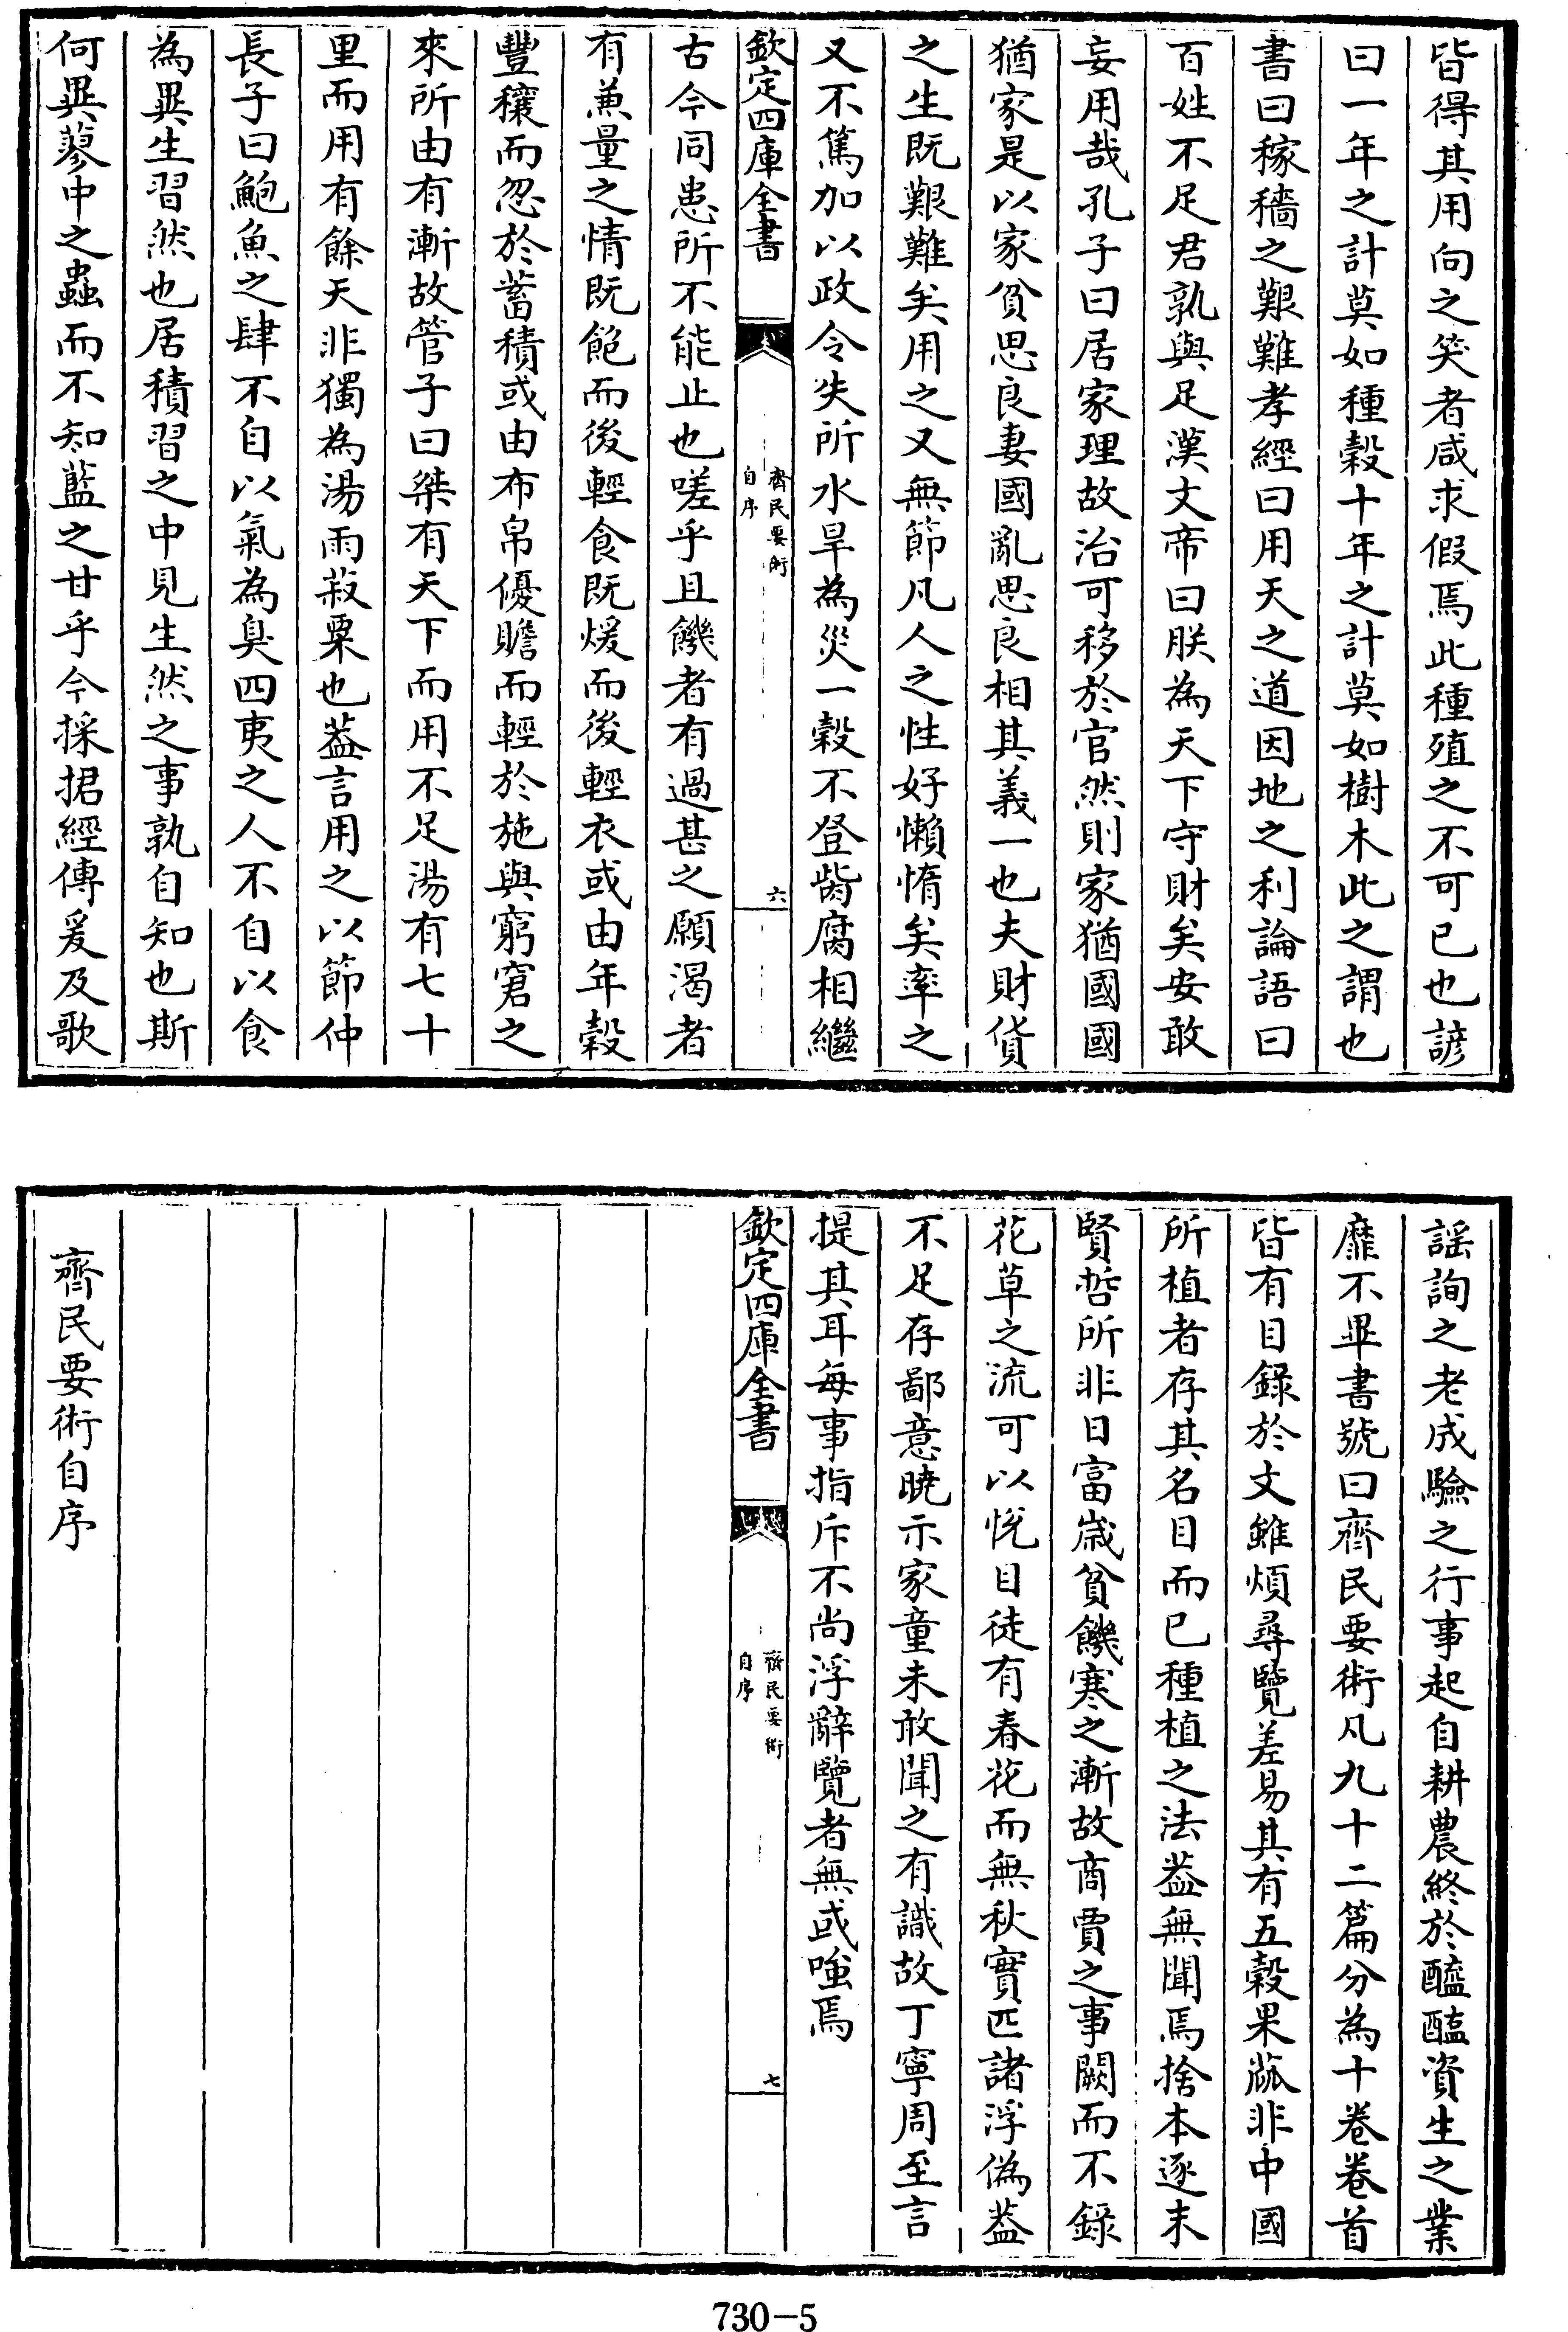 皆得其用向之笑者咸求假焉此種殖之不可已也諺
曰一年之計莫如種穀十年之計莫如樹木此之謂也
書曰稼穡之艱難孝經曰用天之道因地之利論語曰
百姓不足君孰與足漢文帝曰朕為天下守財矣安敢
妄用哉孔子曰居家理故治可移於官然則家猶國國
猶家是以家貧思良妻國亂思良相其義一也夫財貨
之生既艱難矣用之又無節凡人之性好懶惰矣率之
又不篤加以政令失所水旱為災一穀不登胔腐相繼
欽定四庫全書
齊民要術
自序
六
古今同患所不能止也嗟乎且饑者有過甚之願渴者
有兼量之情既飽而後輕食既煖而後輕衣或由年穀
豐穰而忽於蓄積或由布帛優贍而輕於施與窮窘之
來所由有漸故管子曰桀有天下而用不足湯有七十
里而用有餘天非獨為湯雨菽粟也蓋言用之以節仲
長子曰鮑魚之肆不自以氣為臭四夷之人不自以食
為異生習然也居積習之中見生然之事孰自知也斯
何異蓼中之蟲而不知藍之甘乎今採捃經傳爰及歌
謡詢之老成驗之行事起自耕農終於醯醢資生之業
靡不畢書號曰齊民要術凡九十二篇分為十卷卷首
皆有目錄於文雖煩尋覽差易其有五穀果蓏非中國
所植者存其名目而已種植之法蓋無聞焉捨本逐末
賢哲所非日富歲貧饑寒之漸故商賈之事闕而不錄
花草之流可以悅目徒有春花而無秋實匹諸浮偽蓋
不足存鄙意曉示家童未敢聞之有識故丁寧周至言
提其耳每事指斥不尚浮辭覽者無或嗤焉
欽定四庫全書
齊民要術
自序
七
齊民要術自序
730-5